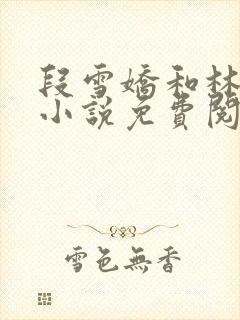 段雪嬌和林
小説免費閱
雪色無香